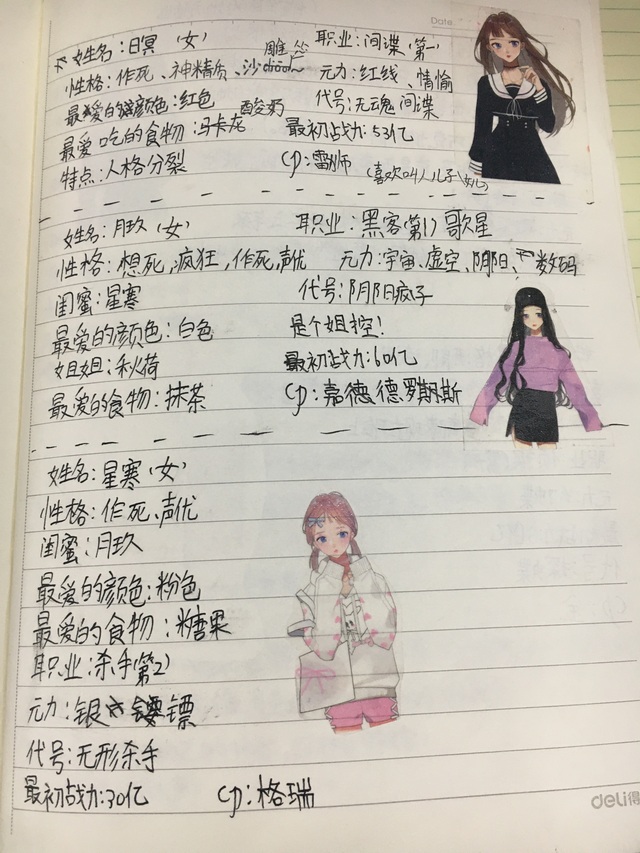 Date
姓名：日冥（女） 职业：间谍（第一）
性格：作死、神精质、沙diao 雕 怂
元力：红线、情愉
最爱的颜色：红色 代号：无魂间谍
最爱吃的食物：马卡龙 酸奶 最初战力：53亿
特点：人格分裂 cp：雷狮（喜欢叫人儿子\女儿）
姓名：月玖（女） 职业：黑客（第1）歌星
性格：想死，疯狂，作死，声优 元力：宇宙、虚空、阴阳、数码
闺蜜：星寒 代号：阴阳疯子
最爱的颜色：白色 是个姐控！
姐姐：秋荷 最初战力：60亿
最爱的食物：抹茶 cp：嘉德、德罗斯
姓名：星寒（女）
性格：作死、声优
闺蜜：月玖
最爱的颜色：粉色
最爱的食物：糖果
职业：杀手（第2）
元力：银镖
代号：无形杀手
最初战力：30亿 cp：格瑞
deli得